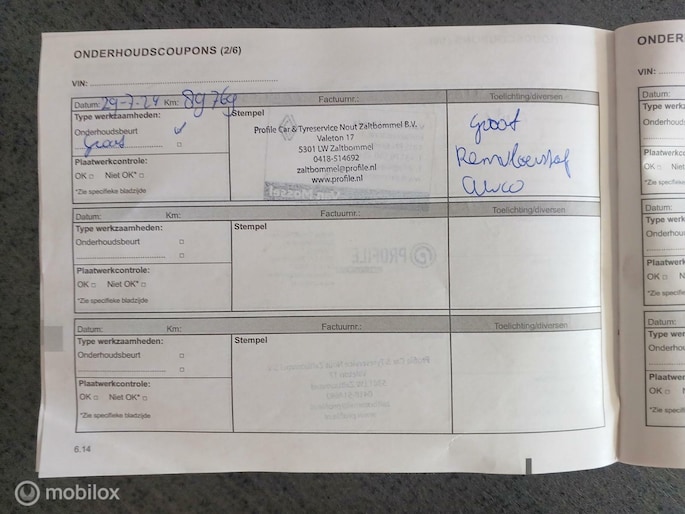 ONDERHOUDSCOUPONS (2/6)
VIN:
Datum: 29-7-24 Km: 89769 Factuurnr.: Toelichting/diversen
Type werkzaamheden: Stempel
Onderhoudsbeurt
Groot
Profile Car & Tyreservice Nout Zaltbommel B.V.
Valeton 17
5301 LW Zaltbommel
0418-514692
zaltbommel@profile.nl
www.profile.nl
Groot
Remvloeistof
Airco
Plaatwerkcontrole:
OK Niet OK*
*Zie specifieke bladzijde
Datum: Km: Factuurnr.: Toelichting/diversen
Type werkzaamheden: Stempel
Onderhoudsbeurt
Plaatwerkcontrole:
OK Niet OK*
*Zie specifieke bladzijde
Datum: Km: Factuurnr.: Toelichting/diversen
Type werkzaamheden: Stempel
Onderhoudsbeurt
Plaatwerkcontrole:
OK Niet OK*
*Zie specifieke bladzijde
6.14
ONDER
VIN:
Datum:
Type werk
Onderhoud
Plaatwerk
OK
*Zie specif
Datum:
Type werk
Onderhoud
Plaatwerk
OK
*Zie specif
Datum:
Type werk
Onderhou
Plaatwerk
OK
*Zie specif
mobilox